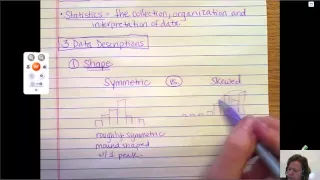 • Statistics - the collection, organization and
interpretation of data.
3 Data Descriptions
① Shape
Symmetric vs. Skewed
roughly symmetric
mound shaped
w/ 1 peak